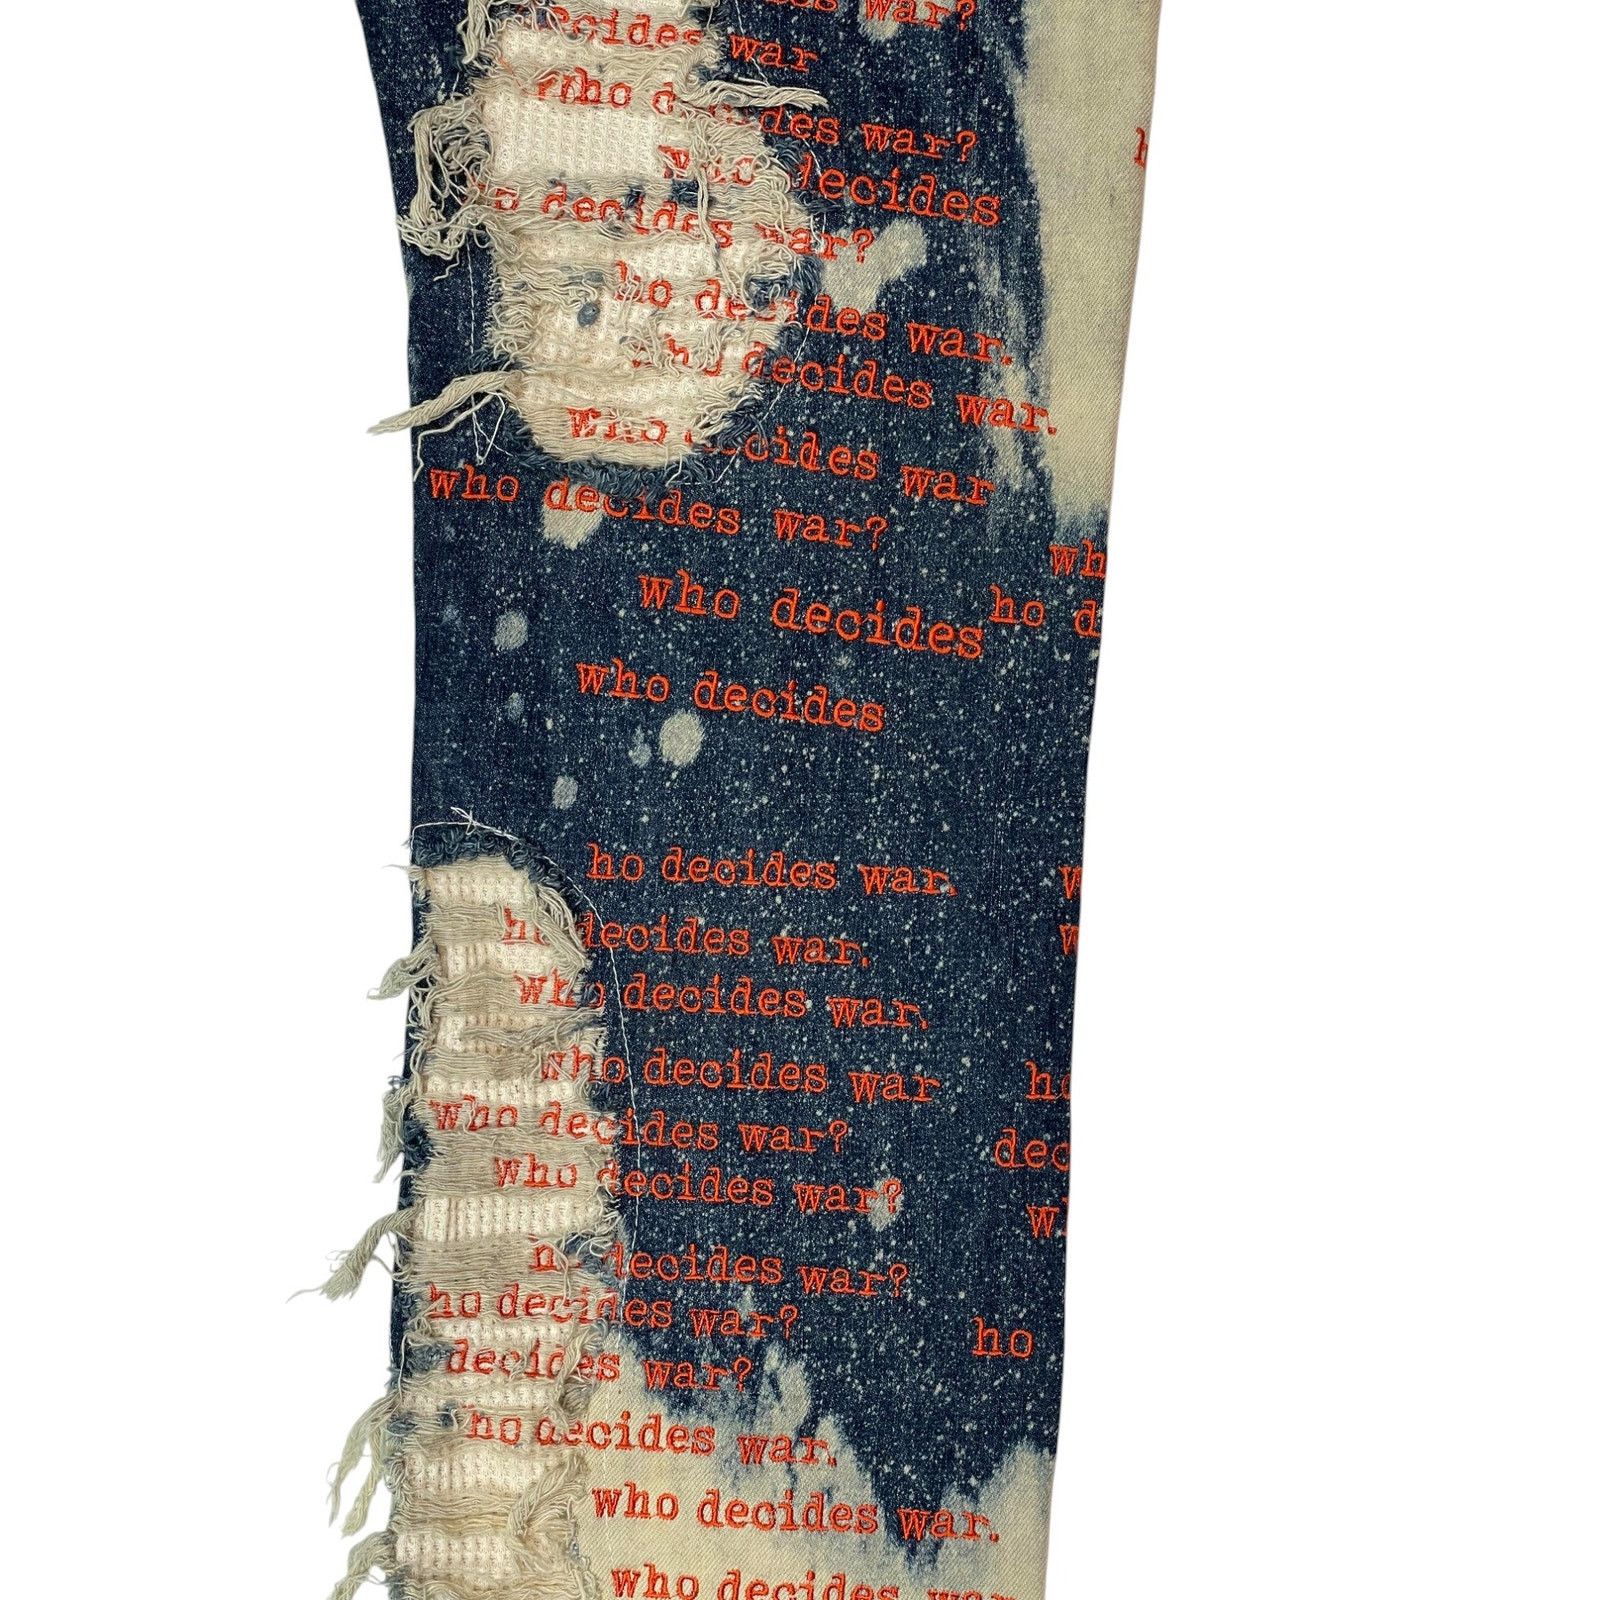 des war?
ecides war
who d des war?
who decides
decides war?
ho decides war.
who decides war.
who decides war
who decides war?
wh
who decides
ho d
who decides
ho decides war.
w
h decides war.
w
who decides war.
who decides war
ho
who decides war?
dec
who decides war?
w
h decides war?
ho decides war?
ho
decides war?
ho decides war.
who decides war.
who decides war